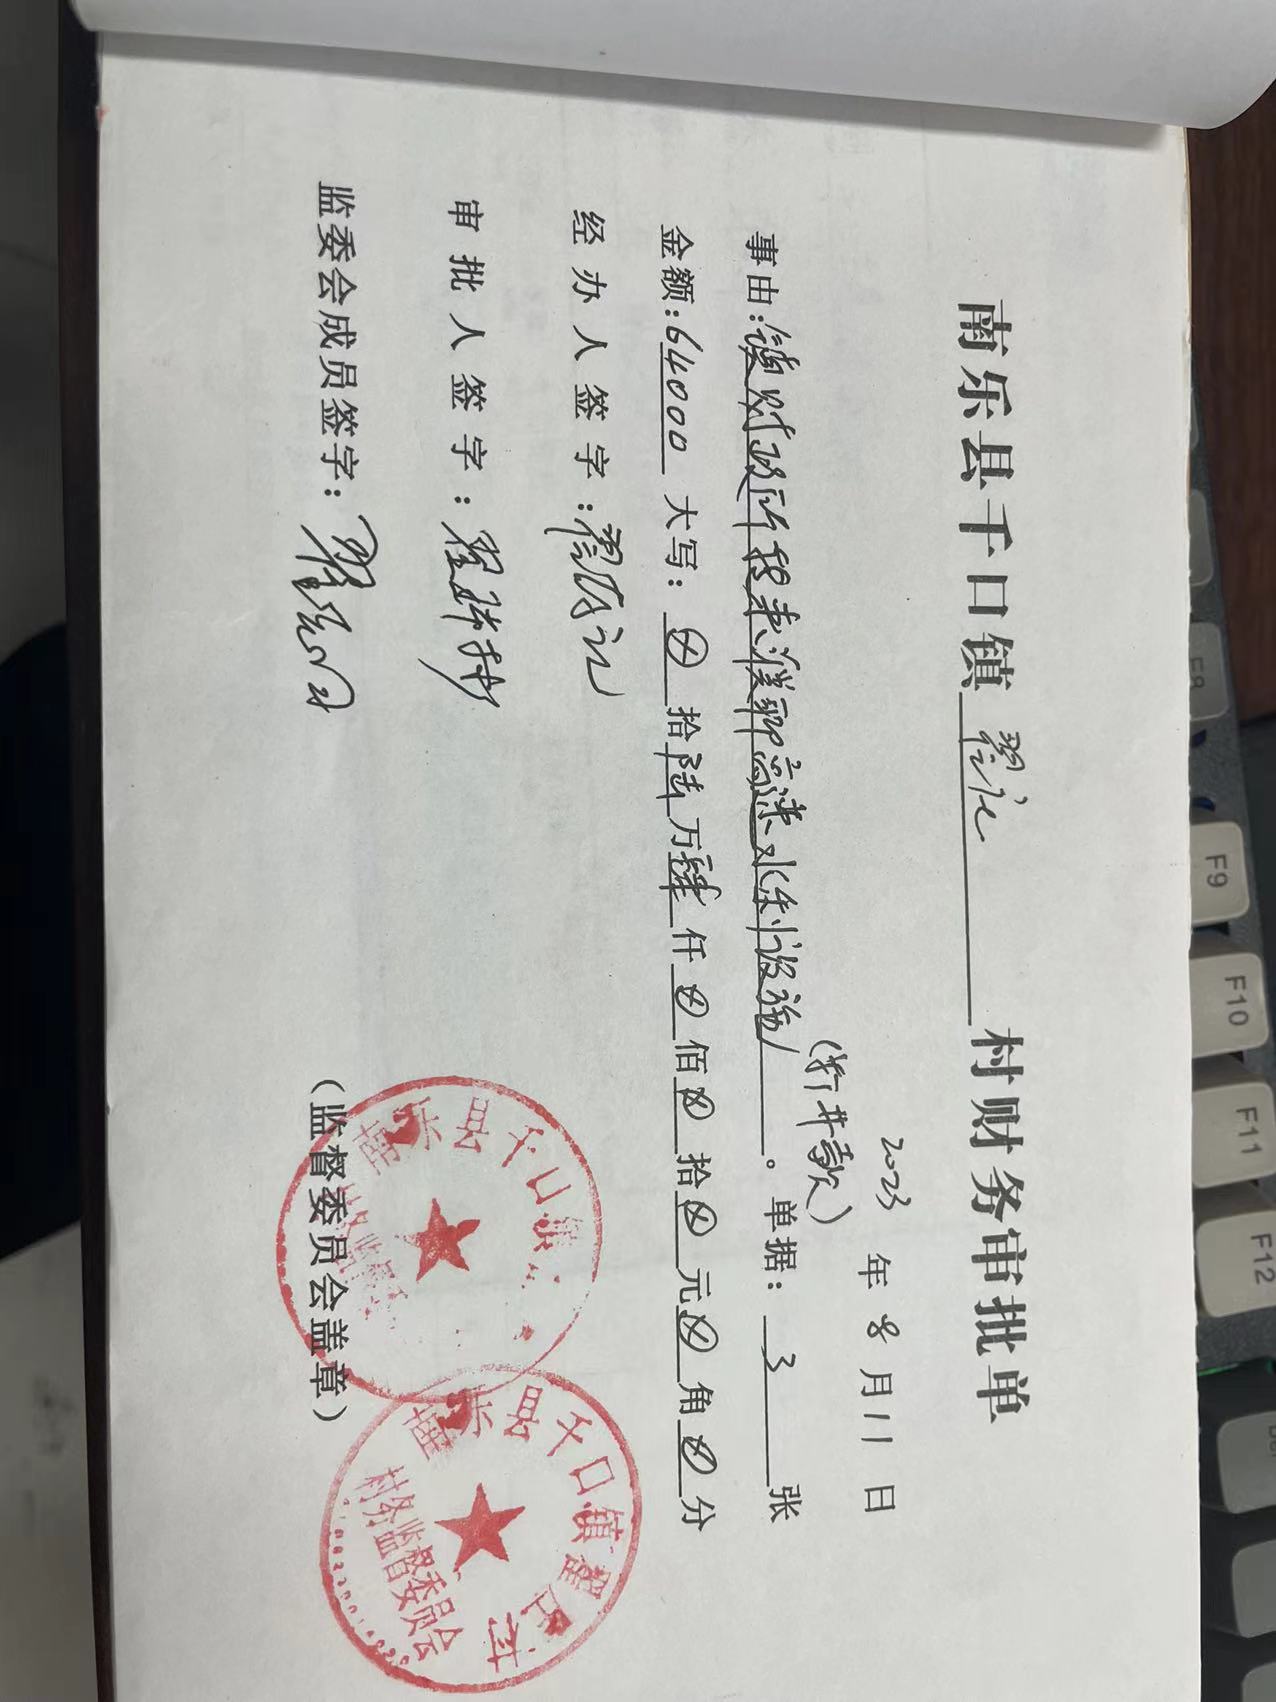 南乐县千口镇翟庄村财务审批单
2023年8月11日
(折井款)
事由:镇财政所拨来濮聊高速水利设施。单据:3张
金额:64000大写:⊗拾陆万肆仟⊗佰⊗拾⊗元⊗角⊗分
经办人签字:
审批人签字:
监委会成员签字:
(监督委员会盖章)
南乐县千口镇
南乐县千口镇翟庄村
村务监督委员会
F8
F9
F10
F11
F12